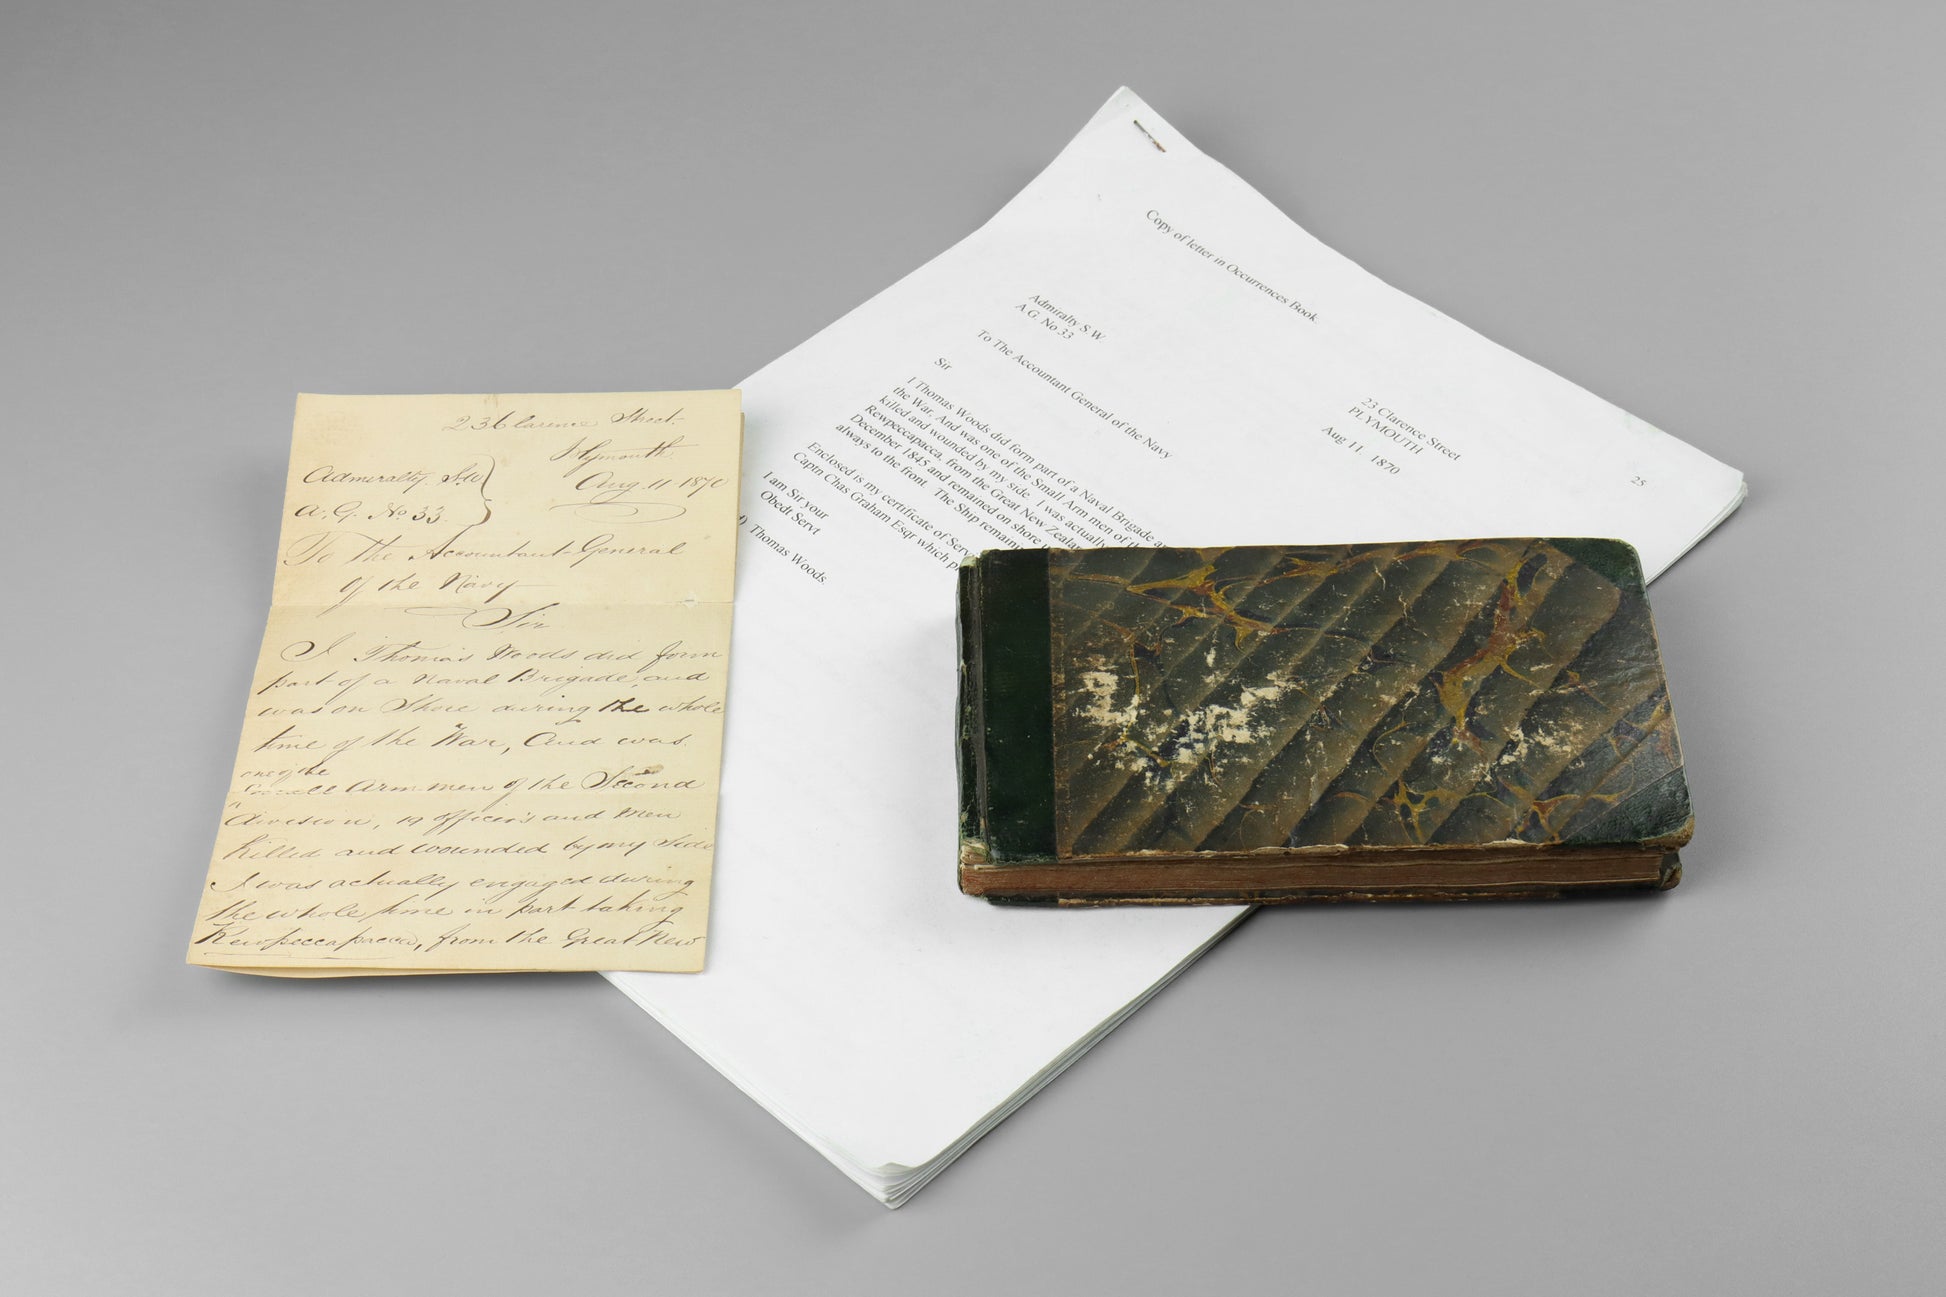 23 Clarence Street.
Plymouth
Aug 11. 1870
Admiralty. S.W
A. G. No 33.
To the Accountant-General
of the Navy
Sir
I Thomas Woods did form
part of a Naval Brigade, and
was on Shore during the whole
time of the War, And was
one of the
Small Arm men of the Second
division, 19 Officer's and Men
Killed and wounded by my Side
I was actually engaged during
the whole time in part taking
Rewpeccapacca, from the Great New
Copy of letter in Occurrences Book.
Admiralty S.W
A.G. No.33
To The Accountant General of the Navy
23 Clarence Street
PLYMOUTH
Aug 11. 1870
25
Sir
I Thomas Woods did form part of a Naval Brigade a
the War. And was one of the Small Arm men of th
killed and wounded by my side. I was actually
Rewpeccapacca, from the Great New Zeala
December 1845 and remained on shore
always to the front. The Ship remain
Enclosed is my certificate of Serv
Captn Chas Graham Esqr which p
I am Sir your
Obedt Servt
Thomas Woods.